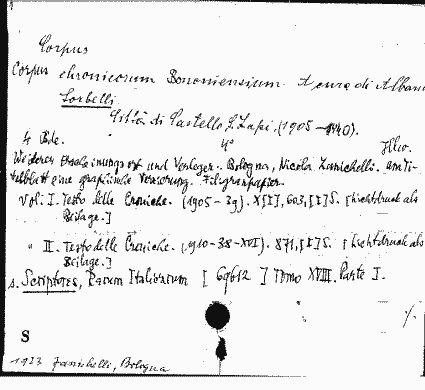 Corpus
Corpus chronicorum Bononiensium. A cura di Albano
Sorbelli.
Città di Castello, S. Lapi. (1905-1940).
4 Bde. 4° Illus.
Weiterer Erscheinungsort und Verleger: Bologna, Nicola Zanichelli. Am Ti-
telblatt eine graphische Verzierung. Filigranpapier.
Vol. I. Testo delle Croniche. (1905-39). X[I], 603, [I] S. [Lichtdruck als
Beilage.]
" II. Testo delle Croniche. (1910-38-XVI). 871, [I] S. [Lichtdruck als
Beilage.]
s. Scriptores, Rerum Italicarum [69612] Tomo XVIII. Parte I.
%.
S
1923 Zanichelli, Bologna